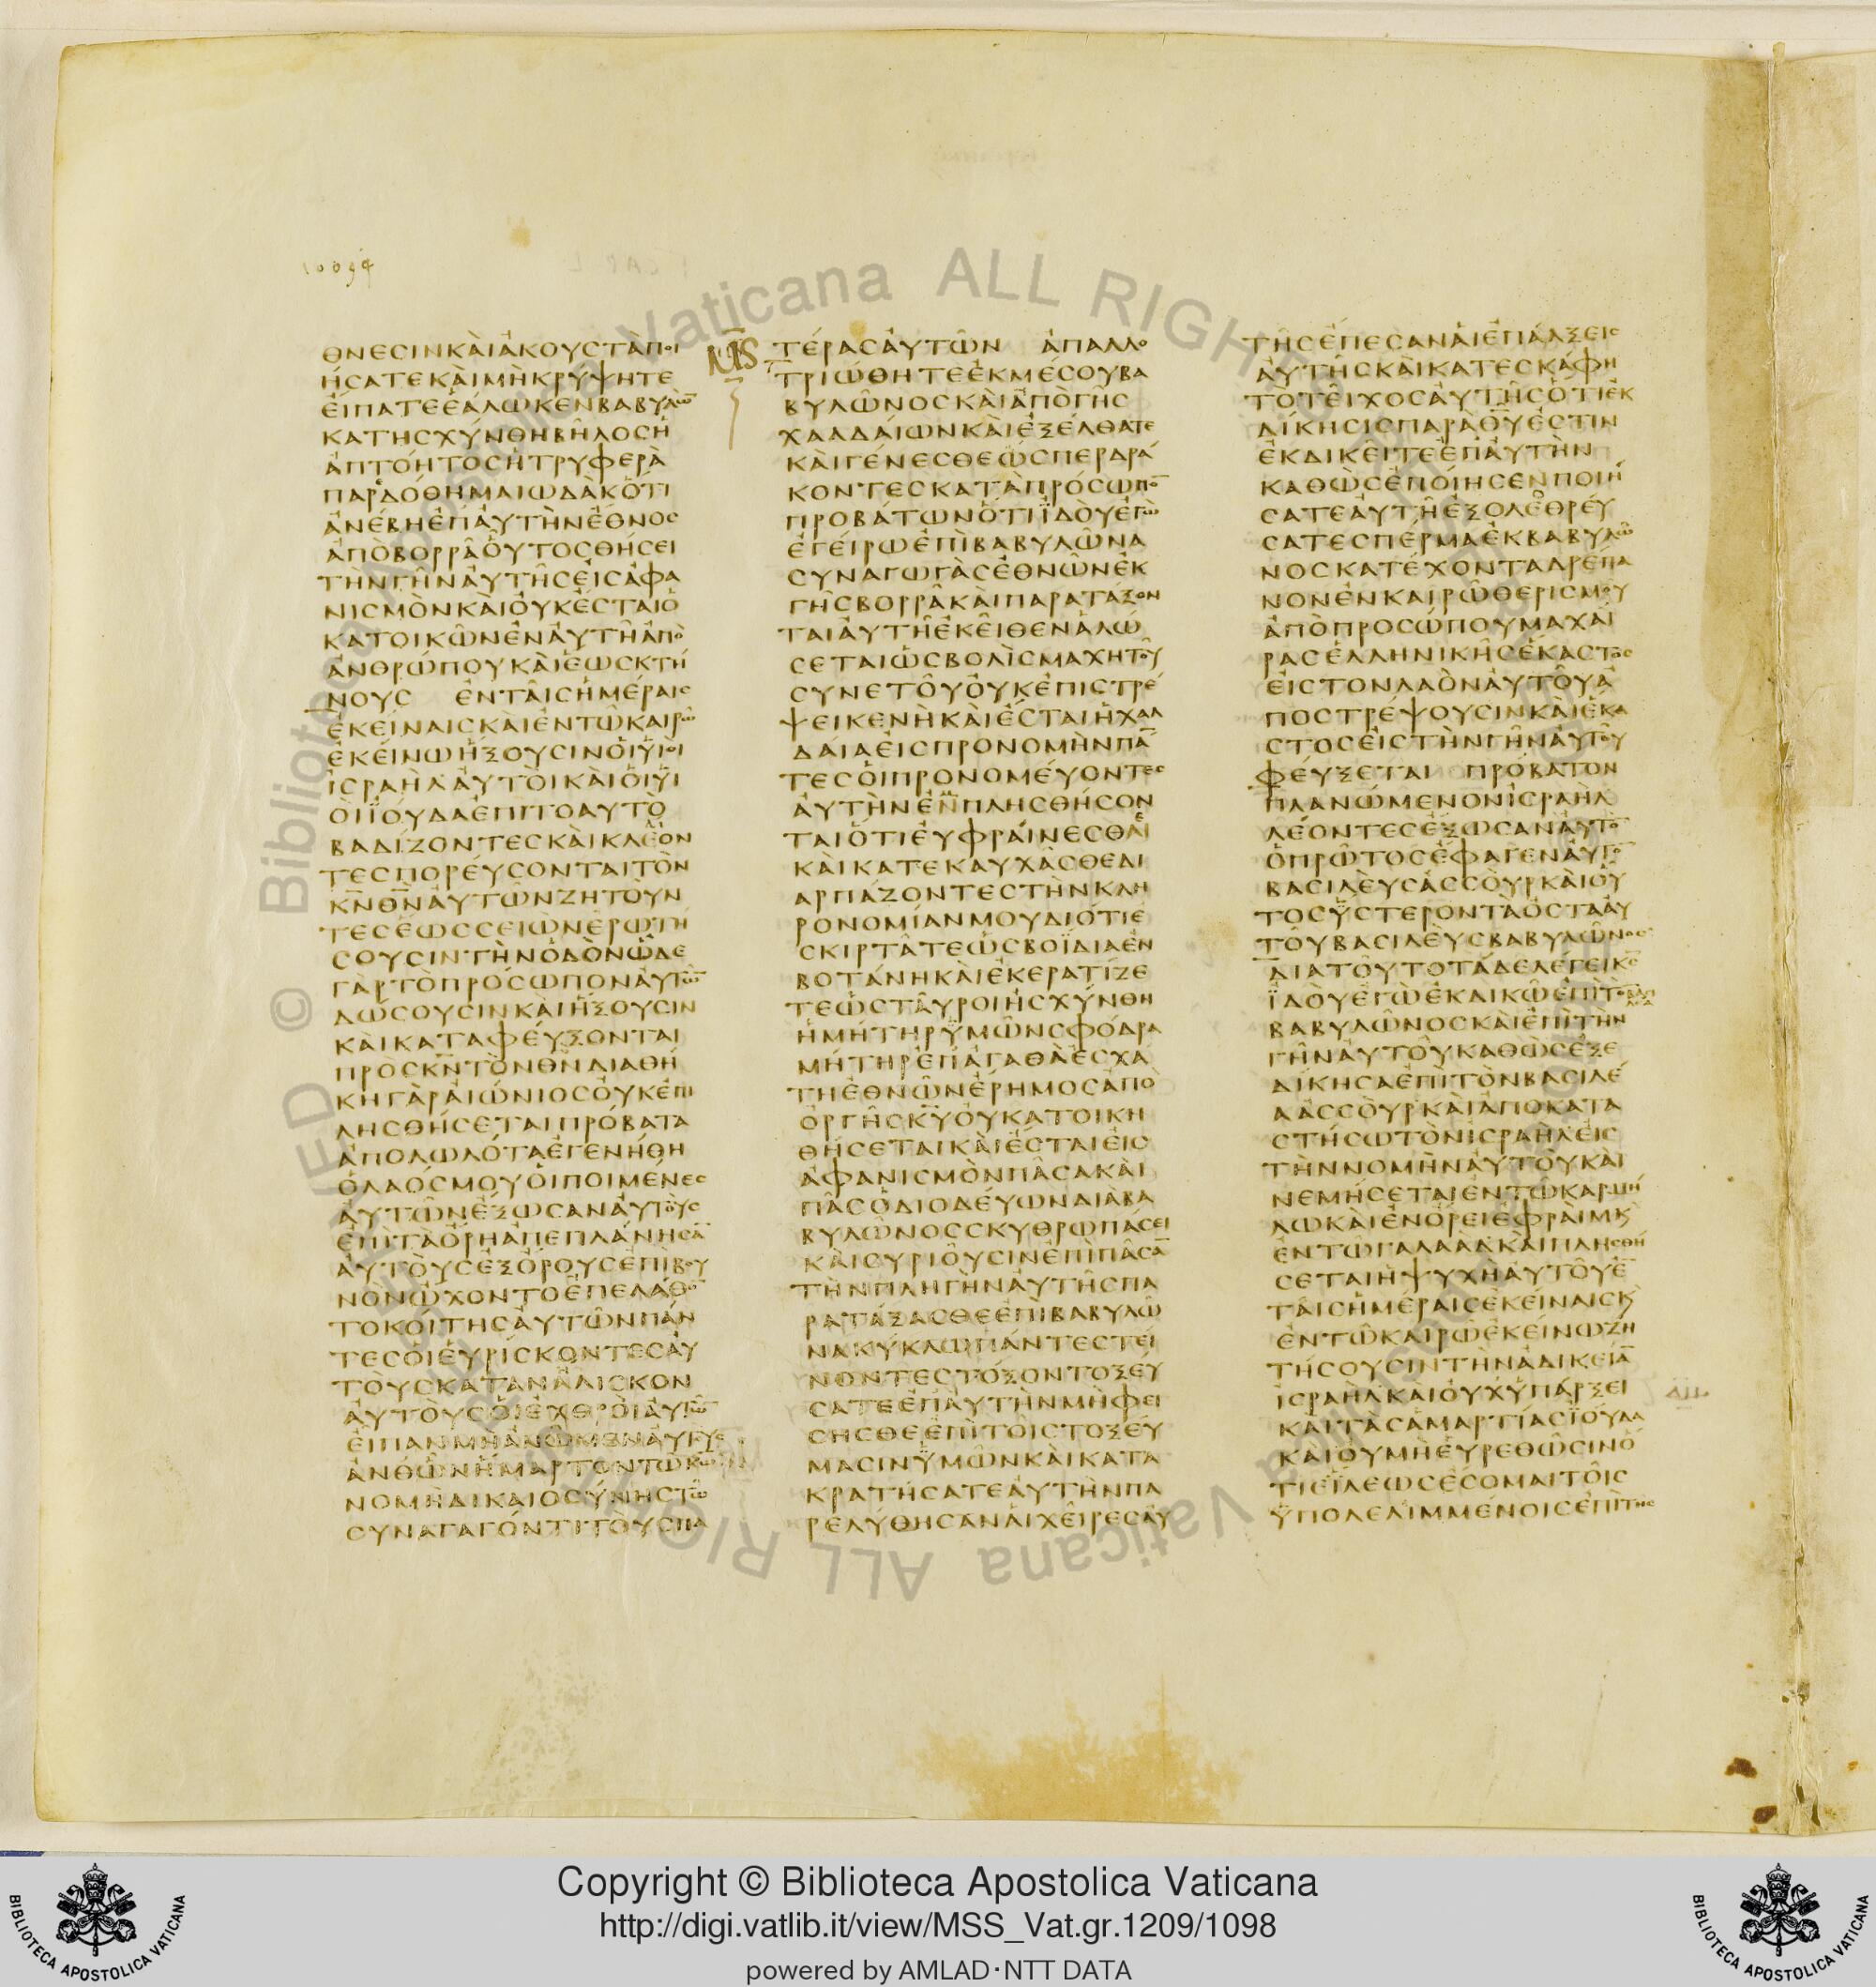 ΘΝΕϹΙΝΚΑΙΑΚΟΥϹΤΑΠΟΙ
ΗϹΑΤΕΚΑΙΜΗΚΡΥΨΗΤΕ
ΕΙΠΑΤΕΕΑΛΩΚΕΝΒΑΒΥΛΩ̅
ΚΑΤΗϹΧΥΝΘΗΒΗΛΟϹΗ
ΑΠΤΟΗΤΟϹΗΤΡΥΦΕΡΑ
ΠΑΡΑΟΘΗΜΑΙΩΔΑΚΟΤΙ
ΑΝΕΒΗΕΠΑΥΤΗΝΕΘΝΟϹ
ΑΠΟΒΟΡΡΑΟΥΤΟϹΘΗϹΕΙ
ΤΗΝΓΗΝΑΥΤΗϹΕΙϹΑΦΑ
ΝΙϹΜΟΝΚΑΙΟΥΚΕϹΤΑΙΟ
ΚΑΤΟΙΚΩΝΕΝΑΥΤΗΑΠΟ
ΑΝΘΡΩΠΟΥΚΑΙΕΩϹΚΤΗ
ΝΟΥϹ ΕΝΤΑΙϹΗΜΕΡΑΙϹ
ΕΚΕΙΝΑΙϹΚΑΙΕΝΤΩΚΑΙΡΩ
ΕΚΕΙΝΩΗΞΟΥϹΙΝΟΙΫΙΟΙ
ΙϹΡΑΗΛΑΥΤΟΙΚΑΙΟΙΫΙ
ΟΙΪΟΥΔΑΕΠΙΤΟΑΥΤΟ
ΒΑΔΙΖΟΝΤΕϹΚΑΙΚΛΕΟΝ
ΤΕϹΠΟΡΕΥϹΟΝΤΑΙΤΟΝ
Κ̅Ν̅Θ̅Ν̅ΑΥΤΩΝΖΗΤΟΥΝ
ΤΕϹΕΩϹϹΕΙΩΝΕΡΩΤΗ
ϹΟΥϹΙΝΤΗΝΟΔΟΝΩΔΕ
ΓΑΡΤΟΠΡΟϹΩΠΟΝΑΥΤΩ̅
ΔΩϹΟΥϹΙΝΚΑΙΗΞΟΥϹΙΝ
ΚΑΙΚΑΤΑΦΕΥΞΟΝΤΑΙ
ΠΡΟϹΚ̅Ν̅ΤΟΝΘ̅Ν̅ΔΙΑΘΗ
ΚΗΓΑΡΑΙΩΝΙΟϹΟΥΚΕΠΙ
ΛΗϹΘΗϹΕΤΑΙΠΡΟΒΑΤΑ
ΑΠΟΛΩΛΟΤΑΕΓΕΝΗΘΗ
ΟΛΑΟϹΜΟΥΟΙΠΟΙΜΕΝΕϹ
ΑΥΤΩΝΕΞΩϹΑΝΑΥΤΟΥϹ
ΕΠΙΤΑΟΡΗΑΠΕΠΛΑΝΗϹΑ̅
ΑΥΤΟΥϹΕΞΟΡΟΥϹΕΠΙΒΟΥ
ΝΟΝΩΧΟΝΤΟΕΠΕΛΑΘΟ̅
ΤΟΚΟΙΤΗϹΑΥΤΩΝΠΑΝ
ΤΕϹΟΙΕΥΡΙϹΚΟΝΤΕϹΑΥ
ΤΟΥϹΚΑΤΑΝΑΛΙϹΚΟΝ
ΑΥΤΟΥϹΟΙΕΧΘΡΟΙΑΥΤΩ̅
ΕΙΠΑΝΜΗΑΝΩΜΕΝΑΥΤΥϹ
ΑΝΘΩΝΗΜΑΡΤΟΝΤΩΚΩ
ΝΟΜΗΔΙΚΑΙΟϹΥΝΗϹΤΩ
ϹΥΝΑΓΑΓΟΝΤΙΤΟΥϹΠΑ
ΤΕΡΑϹΑΥΤΩΝ ΑΠΑΛΛΟ
ΤΡΙΩΘΗΤΕΕΚΜΕϹΟΥΒΑ
ΒΥΛΩΝΟϹΚΑΙΑΠΟΓΗϹ
ΧΑΛΔΑΙΩΝΚΑΙΕΞΕΛΘΑΤΕ
ΚΑΙΓΕΝΕϹΘΕΩϹΠΕΡΔΡΑ
ΚΟΝΤΕϹΚΑΤΑΠΡΟϹΩΠΟ̅
ΠΡΟΒΑΤΩΝΟΤΙΪΔΟΥΕΓΩ
ΕΓΕΙΡΩΕΠΙΒΑΒΥΛΩΝΑ
ϹΥΝΑΓΩΓΑϹΕΘΝΩΝΕΚ
ΓΗϹΒΟΡΡΑΚΑΙΠΑΡΑΤΑΞΟΝ
ΤΑΙΑΥΤΗΕΚΕΙΘΕΝΑΛΩ
ϹΕΤΑΙΩϹΒΟΛΙϹΜΑΧΗΤΟΥ
ϹΥΝΕΤΟΥΟΥΚΕΠΙϹΤΡΕ
ΨΕΙΚΕΝΗΚΑΙΕϹΤΑΙΗΧΑΛ
ΔΑΙΑΕΙϹΠΡΟΝΟΜΗΝΠΑ̅
ΤΕϹΟΙΠΡΟΝΟΜΕΥΟΝΤΕϹ
ΑΥΤΗΝΕΝΠΛΗϹΘΗϹΟΝ
ΤΑΙΟΤΙΕΥΦΡΑΙΝΕϹΘΑΙ
ΚΑΙΚΑΤΕΚΑΥΧΑϹΘΕΔΙ
ΑΡΠΑΖΟΝΤΕϹΤΗΝΚΛΗ
ΡΟΝΟΜΙΑΝΜΟΥΔΙΟΤΙΕ
ϹΚΙΡΤΑΤΕΩϹΒΟΪΔΙΑΕΝ
ΒΟΤΑΝΗΚΑΙΕΚΕΡΑΤΙΖΕ
ΤΕΩϹΤΑΥΡΟΙΗϹΧΥΝΘΗ
ΗΜΗΤΗΡΫΜΩΝϹΦΟΔΡΑ
ΜΗΤΗΡΕΠΑΓΑΘΑΕϹΧΑ
ΤΗΕΘΝΩΝΕΡΗΜΟϹΑΠΟ
ΟΡΓΗϹΚ̅Υ̅ΟΥΚΑΤΟΙΚΗ
ΘΗϹΕΤΑΙΚΑΙΕϹΤΑΙΕΙϹ
ΑΦΑΝΙϹΜΟΝΠΑϹΑΚΑΙ
ΠΑϹΟΔΙΟΔΕΥΩΝΔΙΑΒΑ
ΒΥΛΩΝΟϹϹΚΥΘΡΩΠΑϹΕΙ
ΚΑΙϹΥΡΙΟΥϹΙΝΕΠΙΠΑϹΑ̅
ΤΗΝΠΛΗΓΗΝΑΥΤΗϹΠΑ
ΡΑΤΑΞΑϹΘΕΕΠΙΒΑΒΥΛΩ
ΝΑΚΥΚΛΩΠΑΝΤΕϹΤΕΙ
ΝΟΝΤΕϹΤΟΞΟΝΤΟΞΕΥ
ϹΑΤΕΕΠΑΥΤΗΝΜΗΦΕΙ
ϹΗϹΘΕΕΠΙΤΟΙϹΤΟΞΕΥ
ΜΑϹΙΝΫΜΩΝΚΑΙΚΑΤΑ
ΚΡΑΤΗϹΑΤΕΑΥΤΗΝΠΑ
ΡΕΛΥΘΗϹΑΝΑΙΧΕΙΡΕϹΑΥ
ΤΗϹΕΠΕϹΑΝΑΙΕΠΑΛΞΕΙϹ
ΑΥΤΗϹΚΑΙΚΑΤΕϹΚΑΦΗ
ΤΟΤΕΙΧΟϹΑΥΤΗϹΟΤΙΕΚ
ΔΙΚΗϹΙϹΠΑΡΑΘ̅Υ̅ΕϹΤΙΝ
ΕΚΔΙΚΕΙΤΕΕΠΑΥΤΗΝ
ΚΑΘΩϹΕΠΟΙΗϹΕΝΠΟΙΗ
ϹΑΤΕΑΥΤΗΕΞΟΛΕΘΡΕΥ
ϹΑΤΕϹΠΕΡΜΑΕΚΒΑΒΥΛΩ
ΝΟϹΚΑΤΕΧΟΝΤΑΔΡΕΠΑ
ΝΟΝΕΝΚΑΙΡΩΘΕΡΙϹΜΟΥ
ΑΠΟΠΡΟϹΩΠΟΥΜΑΧΑΙ
ΡΑϹΕΛΛΗΝΙΚΗϹΕΚΑϹΤΟϹ
ΕΙϹΤΟΝΛΑΟΝΑΥΤΟΥΑ
ΠΟϹΤΡΕΨΟΥϹΙΝΚΑΙΕΚΑ
ϹΤΟϹΕΙϹΤΗΝΓΗΝΑΥΤΟΥ
ΦΕΥΞΕΤΑΙ ΠΡΟΒΑΤΟΝ
ΠΛΑΝΩΜΕΝΟΝΙϹΡΑΗΛ
ΛΕΟΝΤΕϹΕΞΩϹΑΝΑΥΤΟ
ΟΠΡΩΤΟϹΕΦΑΓΕΝΑΥΤΟ̅
ΒΑϹΙΛΕΥϹΑϹϹΟΥΡΚΑΙΟΥ
ΤΟϹΫϹΤΕΡΟΝΤΑΟϹΤΑΑΥ
ΤΟΥΒΑϹΙΛΕΥϹΒΑΒΥΛΩΝΟϹ
ΔΙΑΤΟΥΤΟΤΑΔΕΛΕΓΕΙΚ̅Ϲ̅
ΪΔΟΥΕΓΩΕΚΔΙΚΩΕΠΙΤΟ
ΒΑΒΥΛΩΝΟϹΚΑΙΕΠΙΤΗΝ
ΓΗΝΑΥΤΟΥΚΑΘΩϹΕΞΕ
ΔΙΚΗϹΑΕΠΙΤΟΝΒΑϹΙΛΕ
ΑΑϹϹΟΥΡΚΑΙΑΠΟΚΑΤΑ
ϹΤΗϹΩΤΟΝΙϹΡΑΗΛΕΙϹ
ΤΗΝΝΟΜΗΝΑΥΤΟΥΚΑΙ
ΝΕΜΗϹΕΤΑΙΕΝΤΩΚΑΡΜΗ
ΛΩΚΑΙΕΝΟΡΕΙΕΦΡΑΙΜΚ
ΕΝΤΩΓΑΛΑΑΔΚΑΙΠΛΗϹΘΗ
ϹΕΤΑΙΗΨΥΧΗΑΥΤΟΥΕ̅
ΤΑΙϹΗΜΕΡΑΙϹΕΚΕΙΝΑΙϹΚ
ΕΝΤΩΚΑΙΡΩΕΚΕΙΝΩΖΗ
ΤΗϹΟΥϹΙΝΤΗΝΑΔΙΚΕΙΑ̅
ΙϹΡΑΗΛΚΑΙΟΥΧΫΠΑΡΞΕΙ
ΚΑΙΤΑϹΑΜΑΡΤΙΑϹΪΟΥΔΑ
ΚΑΙΟΥΜΗΕΥΡΕΘΩϹΙΝΟ
ΤΙΕΪΛΕΩϹΕϹΟΜΑΙΤΟΙϹ
ΫΠΟΛΕΛΙΜΜΕΝΟΙϹΕΠΙΤΗϹ
© Biblioteca Apostolica Vaticana ALL RIGHTS RESERVED
Copyright © Biblioteca Apostolica Vaticana
http://digi.vatlib.it/view/MSS_Vat.gr.1209/1098
powered by AMLAD·NTT DATA
BIBLIOTECA APOSTOLICA VATICANA
BIBLIOTECA APOSTOLICA VATICANA